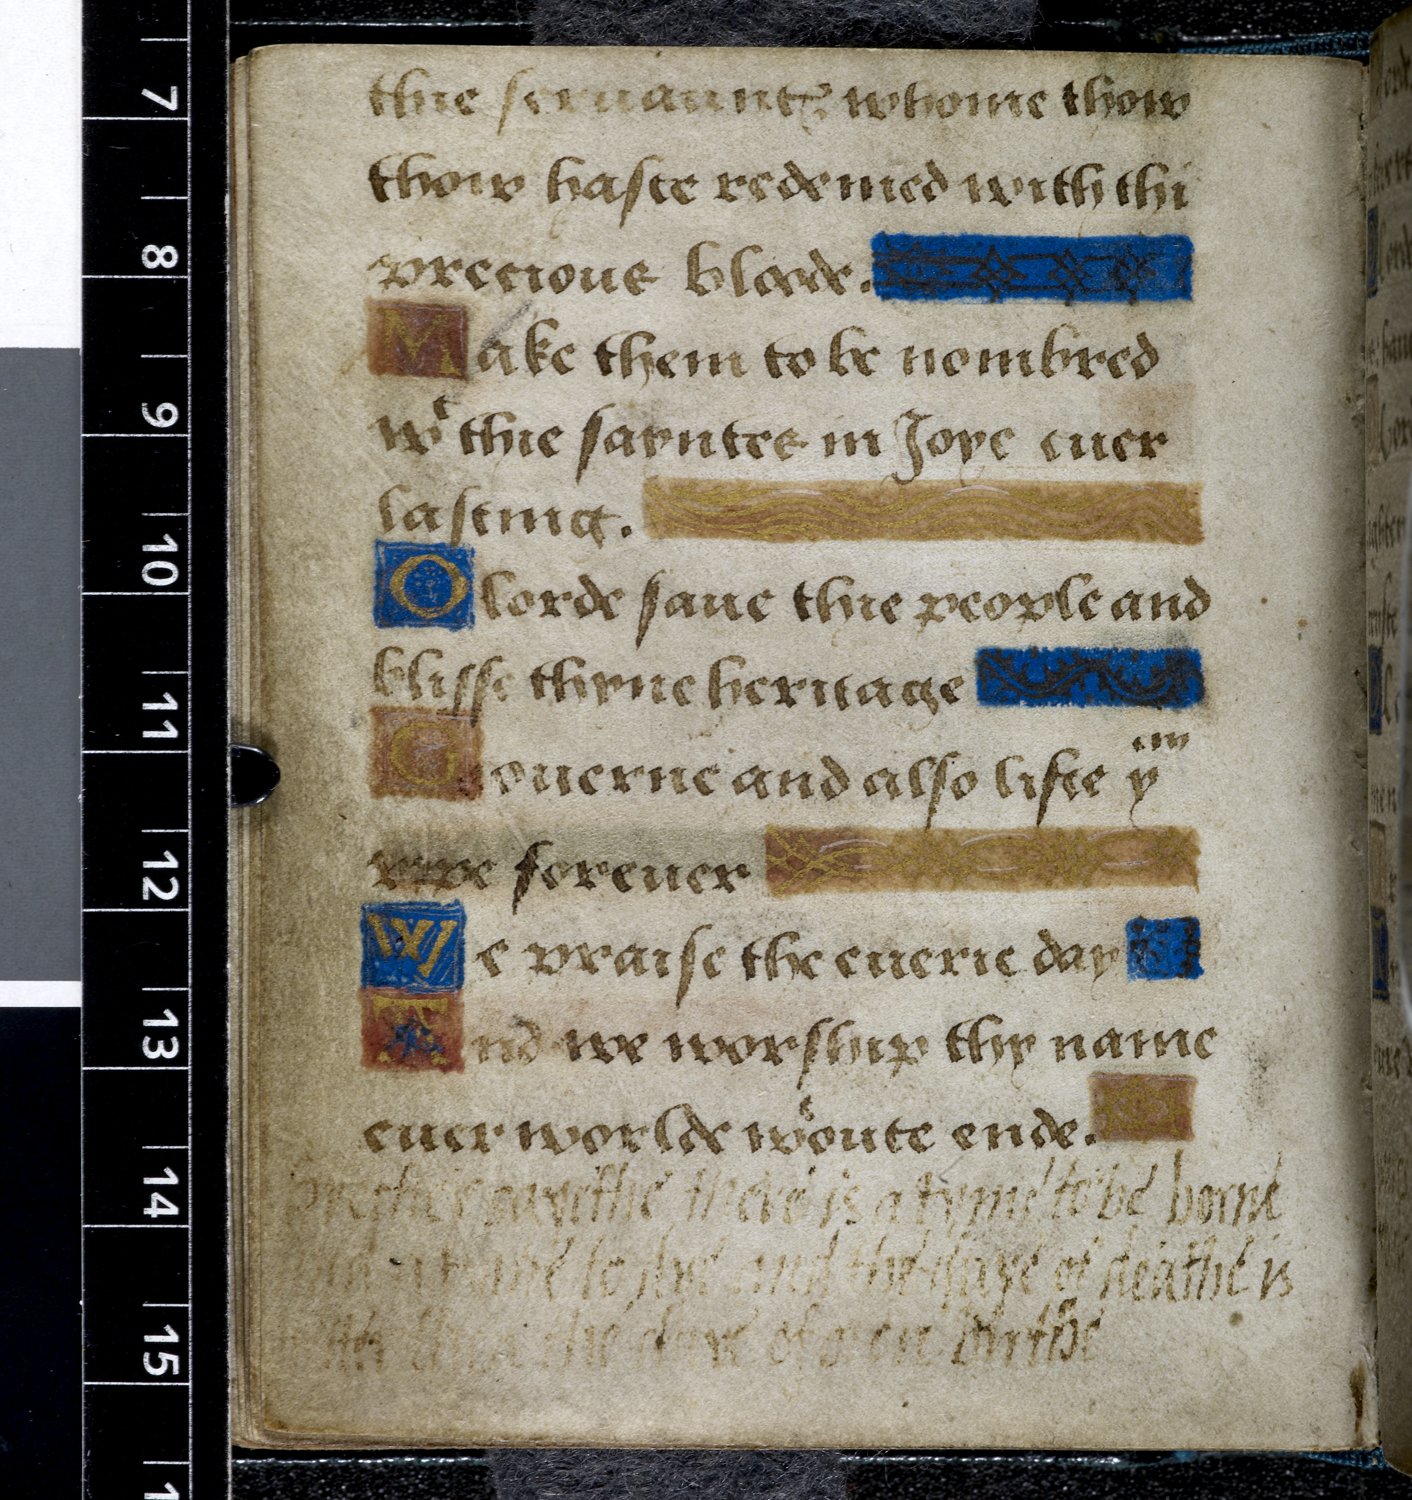 7
8
9
10
11
12
13
14
15
thie seruauntꝭ whome thow
thow haste redemed with thi
precious blode.
Make them to be nombred
wͭ thie sayntes in Joye euer
lasting.
O lorde saue thie people and
blisse thyne heritage
Gouerne and also lifte yͤᵐ
vppe foreuer
We praise the euerie day
And we worship thy name
euer worlde wͭoute ende.
there is a tyme to be borne
and a tyme to dye and the daye of deathe is
the daye of birthe